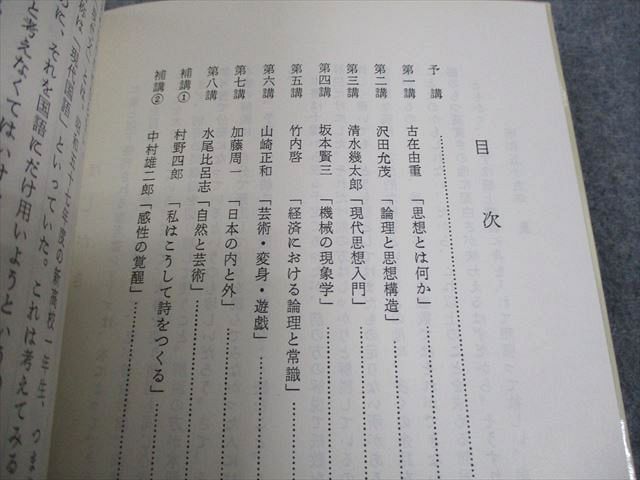 目次
予講
第一講 古在由重「思想とは何か」
第二講 沢田允茂「論理と思想構造」
第三講 清水幾太郎「現代思想入門」
第四講 坂本賢三「機械の現象学」
第五講 竹内啓「経済における論理と常識」
第六講 山崎正和「芸術・変身・遊戯」
第七講 加藤周一「日本の内と外」
第八講 水尾比呂志「自然と芸術」
補講① 村野四郎「私はこうして詩をつくる」
補講② 中村雄二郎「感性の覚醒」
昭和五十七年度の新高校一年生、つま
称は「現代国語」といっていた。これは考えてみる
に、それを国語にだけ用いようという
と考えなくてはいけ